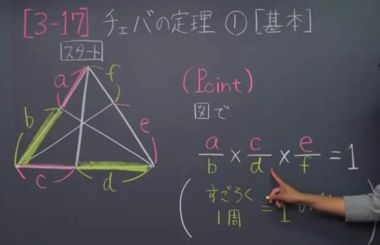 [3-17] チェバの定理 ① [基本]
スタート
a
f
b
e
c
d
(Point)
図で
a/b × c/d × e/f = 1
(すごろく
1周 = 1